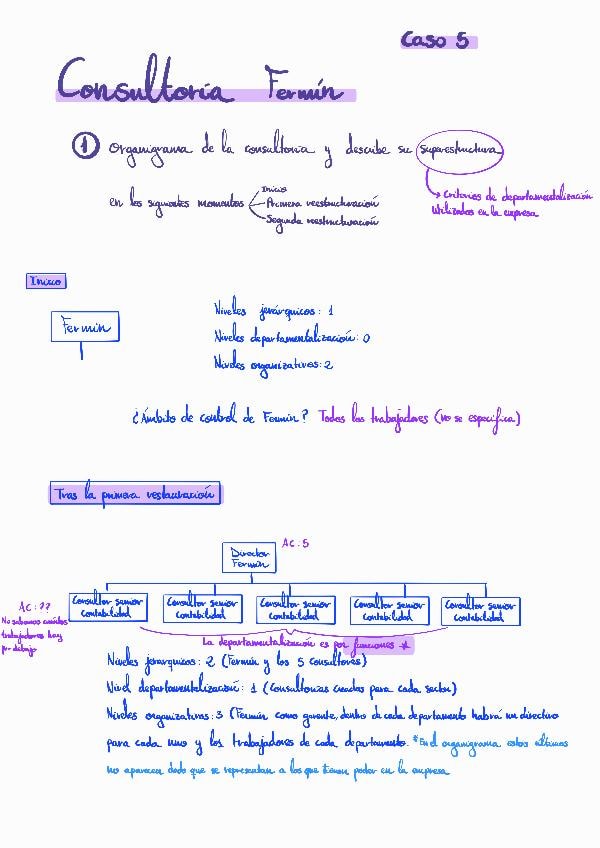 Caso 5
Consultoría Fermín
① Organigrama de la consultoria y describe su superestructura
en los siguientes momentos
Inicio
Primera reestructuración
Segunda reestructuración
Criterios de departamentalización
Utilizados en la empresa
Inicio
Fermín
Niveles jerárquicos: 1
Niveles departamentalización: 0
Niveles organizativos: 2
¿Ámbito de control de Fermín? Todos los trabajadores (no se especifica)
Tras la primera restauración
Director
Fermín
AC: 5
AC: ??
No sabemos cuántos
trabajadores hay
por debajo
Consultor senior
contabilidad
Consultor senior
contabilidad
Consultor senior
contabilidad
Consultor senior
contabilidad
Consultor senior
contabilidad
La departamentalización es por funciones *
Niveles jerarquicos: 2 (Fermín y los 5 consultores)
Nivel departamentalización: 1 (Consultorias creadas para cada sector)
Niveles organizativos: 3 (Fermín como gerente, dentro de cada departamento habrá un directivo
para cada uno y los trabajadores de cada departamento. *En el organigrama estos últimos
no aparecen dado que se representan a los que tienen poder en la empresa